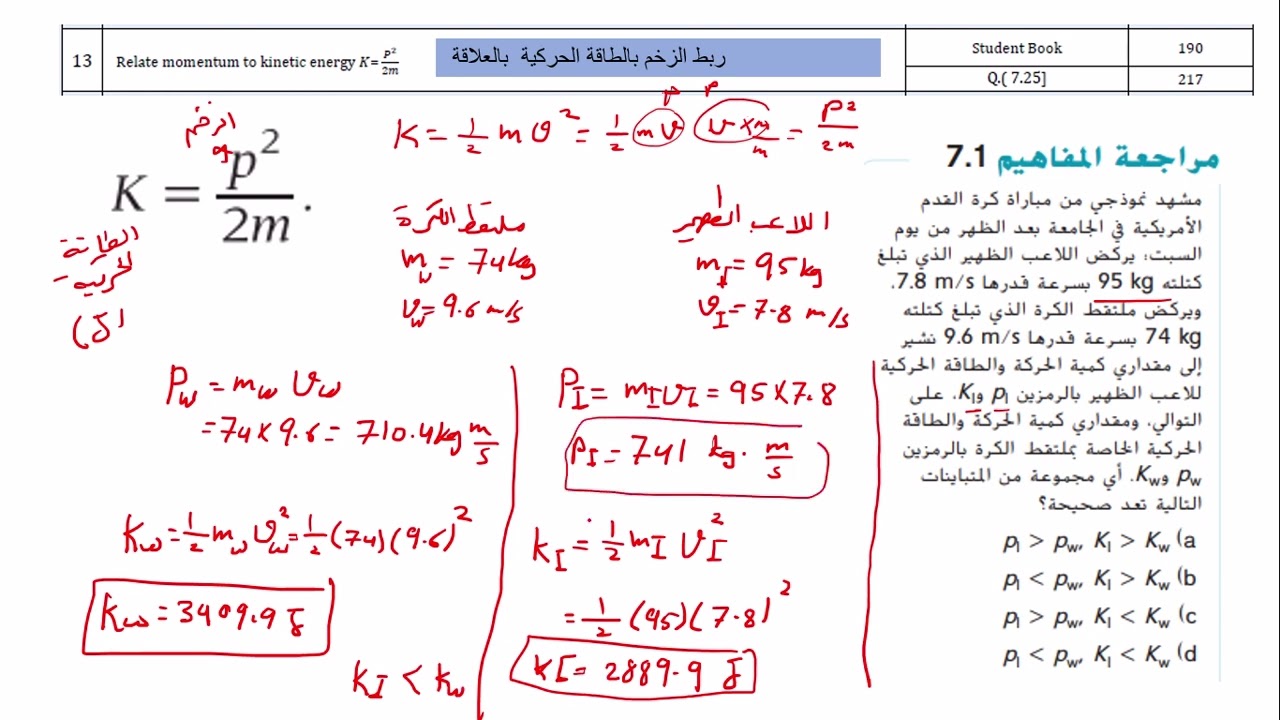 13 Relate momentum to kinetic energy K=P²/2m ربط الزخم بالطاقة الحركية بالعلاقة Student Book 190
Q.( 7.25] 217
الزخم
K = p²/2m .
الطاقة
الحركية
(J)
K = 1/2 m v² = 1/2 m v v × m/m = P²/2m
P P
ملتقط الكرة
m_w = 74 kg
v_w = 9.6 m/s
اللاعب الظهير
m_I = 95 kg
v_I = 7.8 m/s
P_w = m_w v_w
= 74 × 9.6 = 710.4 kg m/s
K_w = 1/2 m_w v_w² = 1/2 (74)(9.6)²
K_w = 3409.9 J
P_I = m_I v_I = 95 × 7.8
P_I = 741 kg. m/s
K_I = 1/2 m_I v_I²
= 1/2 (95)(7.8)²
K_I = 2889.9 J
K_I < K_w
مراجعة المفاهيم 7.1
مشهد نموذجي من مباراة كرة القدم
الأمريكية في الجامعة بعد الظهر من يوم
السبت: يركض اللاعب الظهير الذي تبلغ
كتلته 95 kg بسرعة قدرها 7.8 m/s.
ويركض ملتقط الكرة الذي تبلغ كتلته
74 kg بسرعة قدرها 9.6 m/s نشير
إلى مقداري كمية الحركة والطاقة الحركية
للاعب الظهير بالرمزين p_I و K_I، على
التوالي، ومقداري كمية الحركة والطاقة
الحركية الخاصة بملتقط الكرة بالرمزين
p_w و K_w. أي مجموعة من المتباينات
التالية تعد صحيحة؟
a) p_I > p_w, K_I > K_w
b) p_I < p_w, K_I > K_w
c) p_I > p_w, K_I < K_w
d) p_I < p_w, K_I < K_w